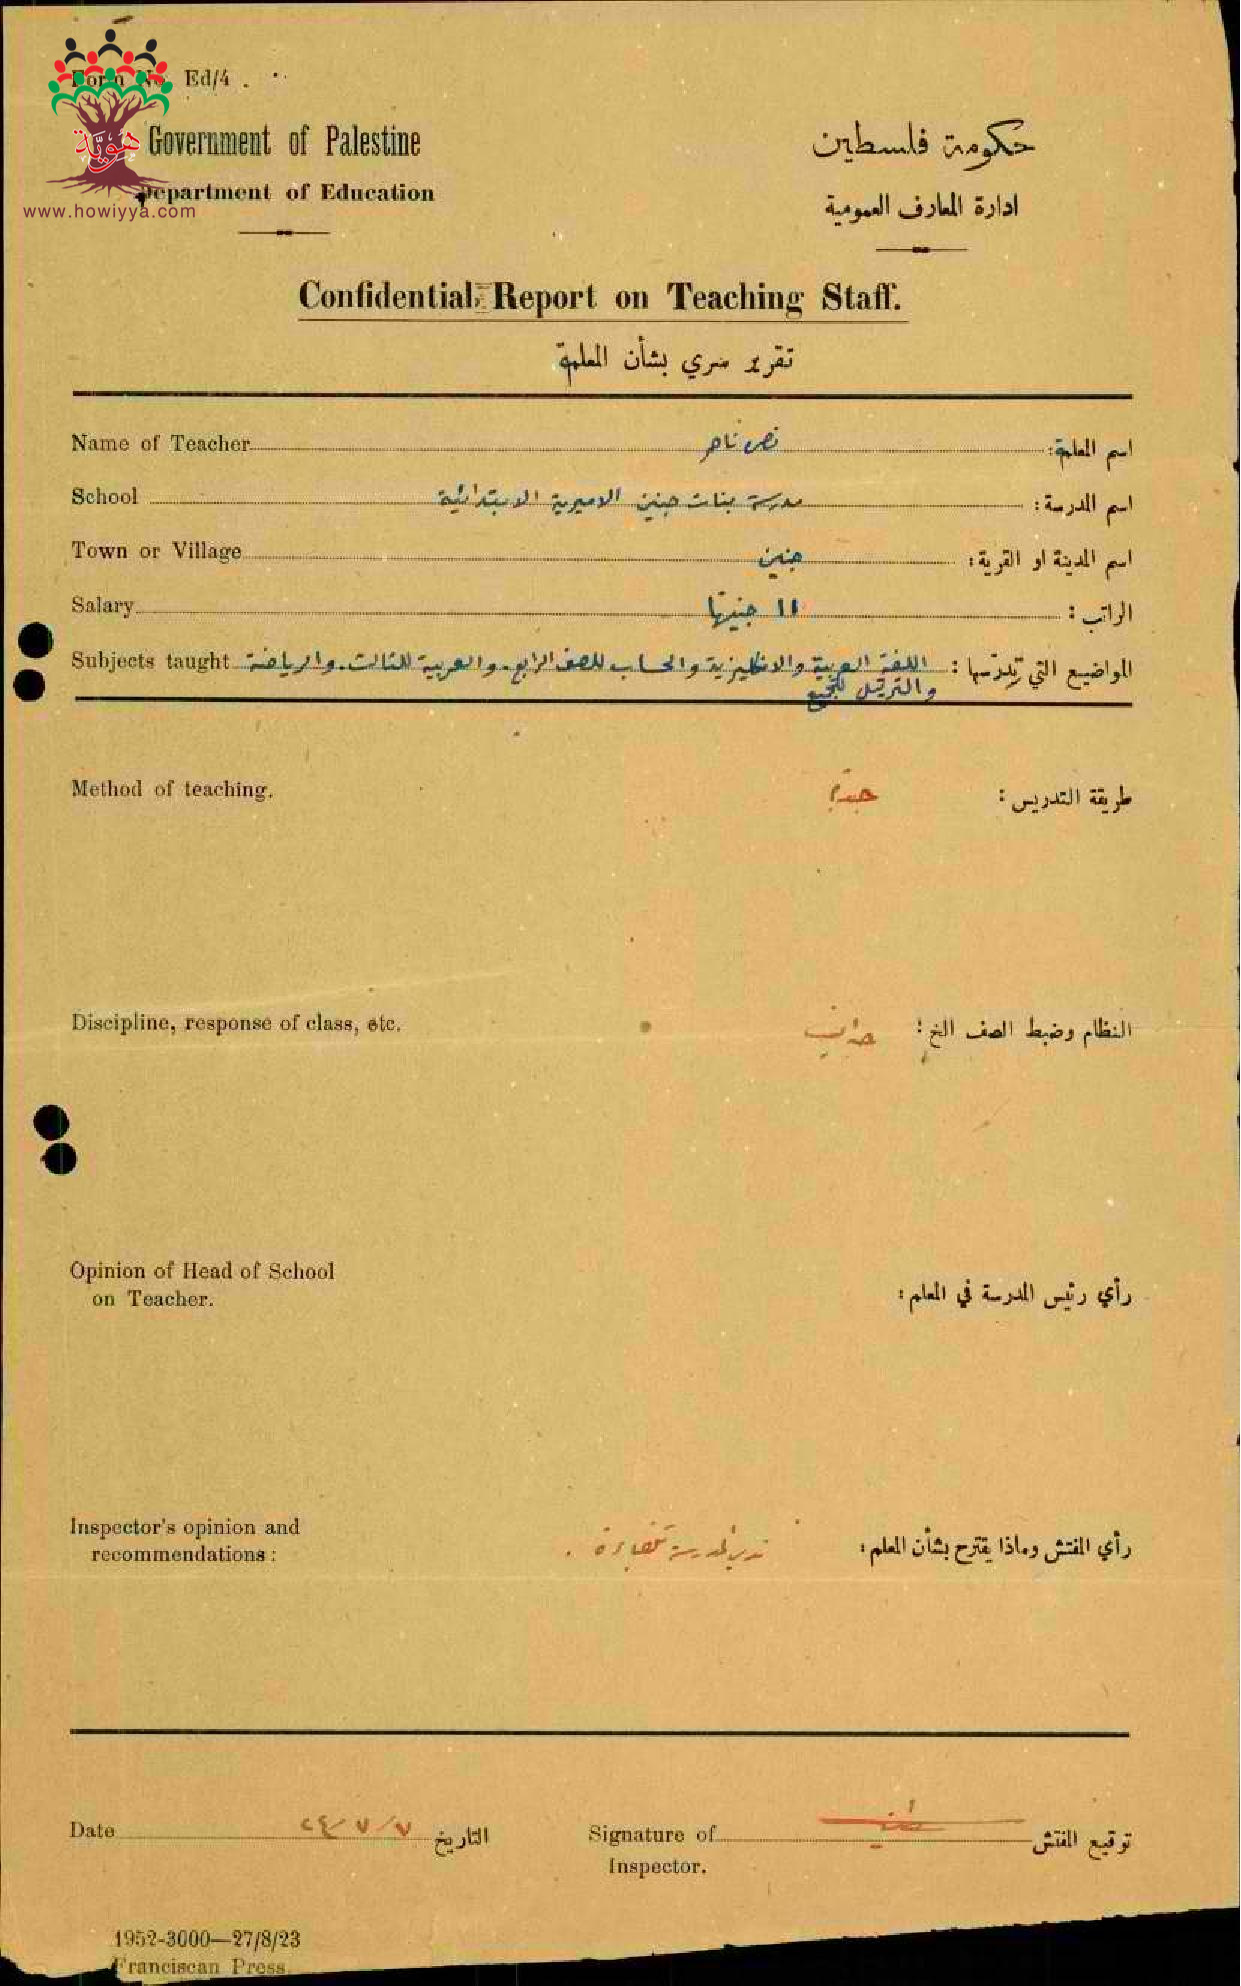 Form No. Ed/4.
هوية
www.howiyya.com
Government of Palestine
حكومة فلسطين
Department of Education
ادارة المعارف العمومية
Confidential Report on Teaching Staff.
تقرير سري بشأن المعلمة
Name of Teacher
اسم المعلمة:
School مدرسة بنات جنين الاميرية الابتدائية اسم المدرسة:
Town or Village جنين اسم المدينة او القرية:
Salary ١١ جنيها الراتب:
Subjects taught
المواضيع التي تدرسها: اللغة العربية والانكليزية والحساب للصف الرابع. والعربية للثالث. والرياضة
والترتيل للجميع
Method of teaching. جيدة طريقة التدريس:
Discipline, response of class, etc.
النظام وضبط الصف الخ:
Opinion of Head of School
on Teacher.
رأي رئيس المدرسة في المعلم:
Inspector's opinion and
recommendations:
رأي المفتش وماذا يقترح بشأن المعلم: تدير المدرسة بكفاءة.
Date ٢٤/٧/٧ التاريخ
Signature of
Inspector.
توقيع المفتش
1952-3000—27/8/23
Franciscan Press